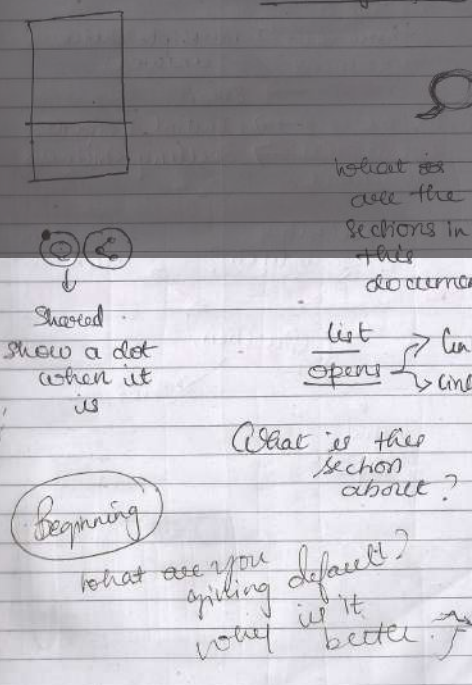 what is
are the
sections in
this
Shared
show a dot
when it
is
list
opens
What is this
section
above?
Beginning
what are you
giving default?
why is it
better